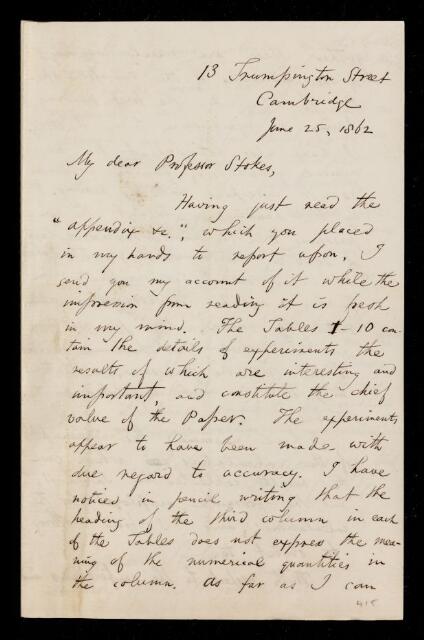 13 Trumpington Street
Cambridge
June 25, 1862
My dear Professor Stokes,
Having just read the
"appendix &c.", which you placed
in my hands to report upon, I
send you my account of it while the
impression from reading it is fresh
in my mind. The Tables 1-10 con-
tain the details of experiments the
results of which are interesting and
important, and constitute the chief
value of the Paper. The experiments
appear to have been made with
due regard to accuracy. I have
noticed in pencil writing that the
heading of the third column in each
of the Tables does not express the mea-
ning of the numerical quantities in
the column. As far as I can
415